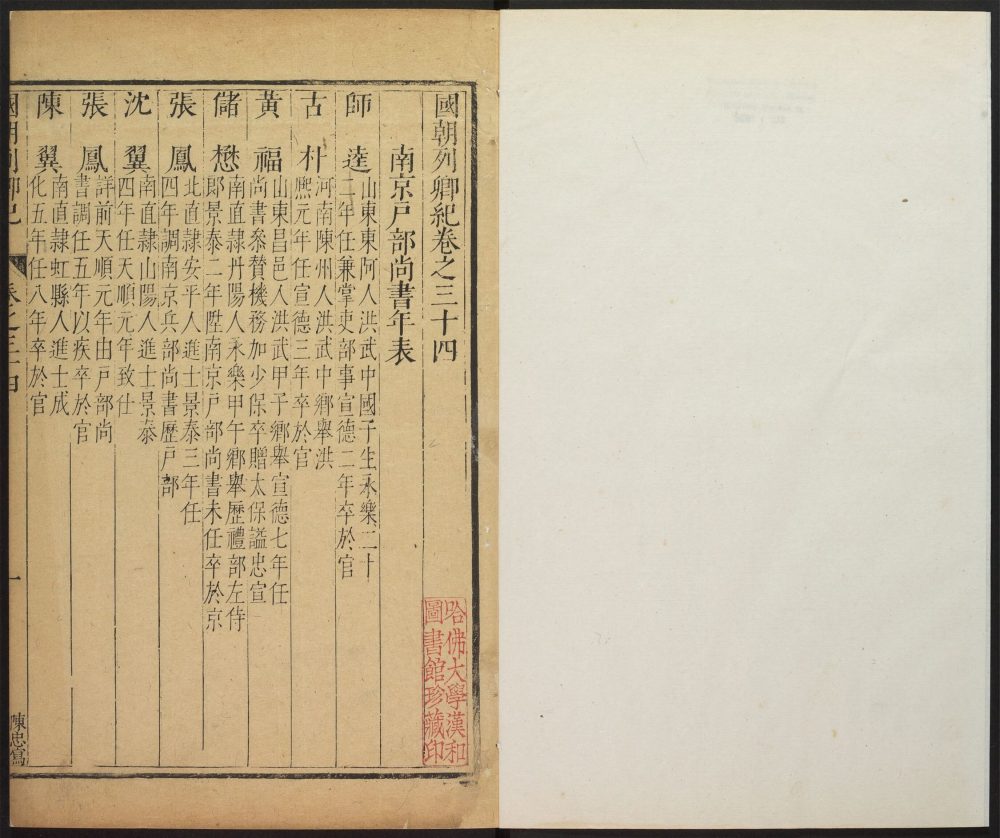 國朝列卿紀卷之三十四
南京戶部尚書年表
師逵 山東東阿人洪武中國子生永樂二十
二年任兼掌吏部事宣德二年卒於官
古朴 河南陳州人洪武中鄉舉洪
熙元年任宣德三年卒於官
黃福 山東昌邑人洪武甲子鄉舉宣德七年任
尚書叅賛機務加少保卒贈太保謚忠宣
儲懋 南直隷丹陽人永樂甲午鄉舉歷禮部左侍
郎景泰二年陞南京戶部尚書未任卒於京
張鳳 北直隷安平人進士景泰三年任
四年調南京兵部尚書歷戶部
沈翼 南直隷山陽人進士景泰
四年任天順元年致仕
張鳳 詳前天順元年由戶部尚
書調任五年以疾卒於官
陳翼 南直隷虹縣人進士成
化五年任八年卒於官
國朝列卿紀 卷之三十四 一
陳忠寫
哈佛大學漢和
圖書館珍藏印